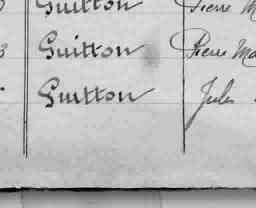 Guitton Pierre M
3 Guitton Pierre Ma
Guitton Jules